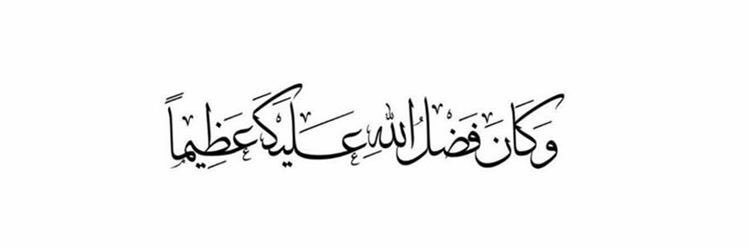 وَكَانَ فَضْلُ اللهِ عَلَيْكَ عَظِيماً